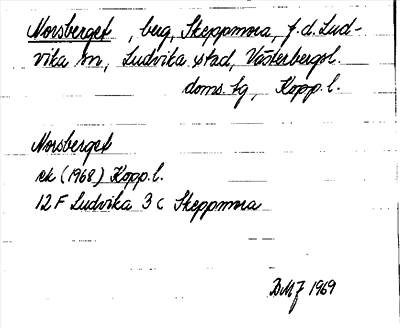 Norsberget, berg, Skeppmora, f.d. Lud-
vika sn, Ludvika stad, Västerbergsl.
doms. tg, Kopp. l.
Norsberget
ek (1968) Kopp. l.
12 F Ludvika 3 c Skeppmora
BMJ 1969